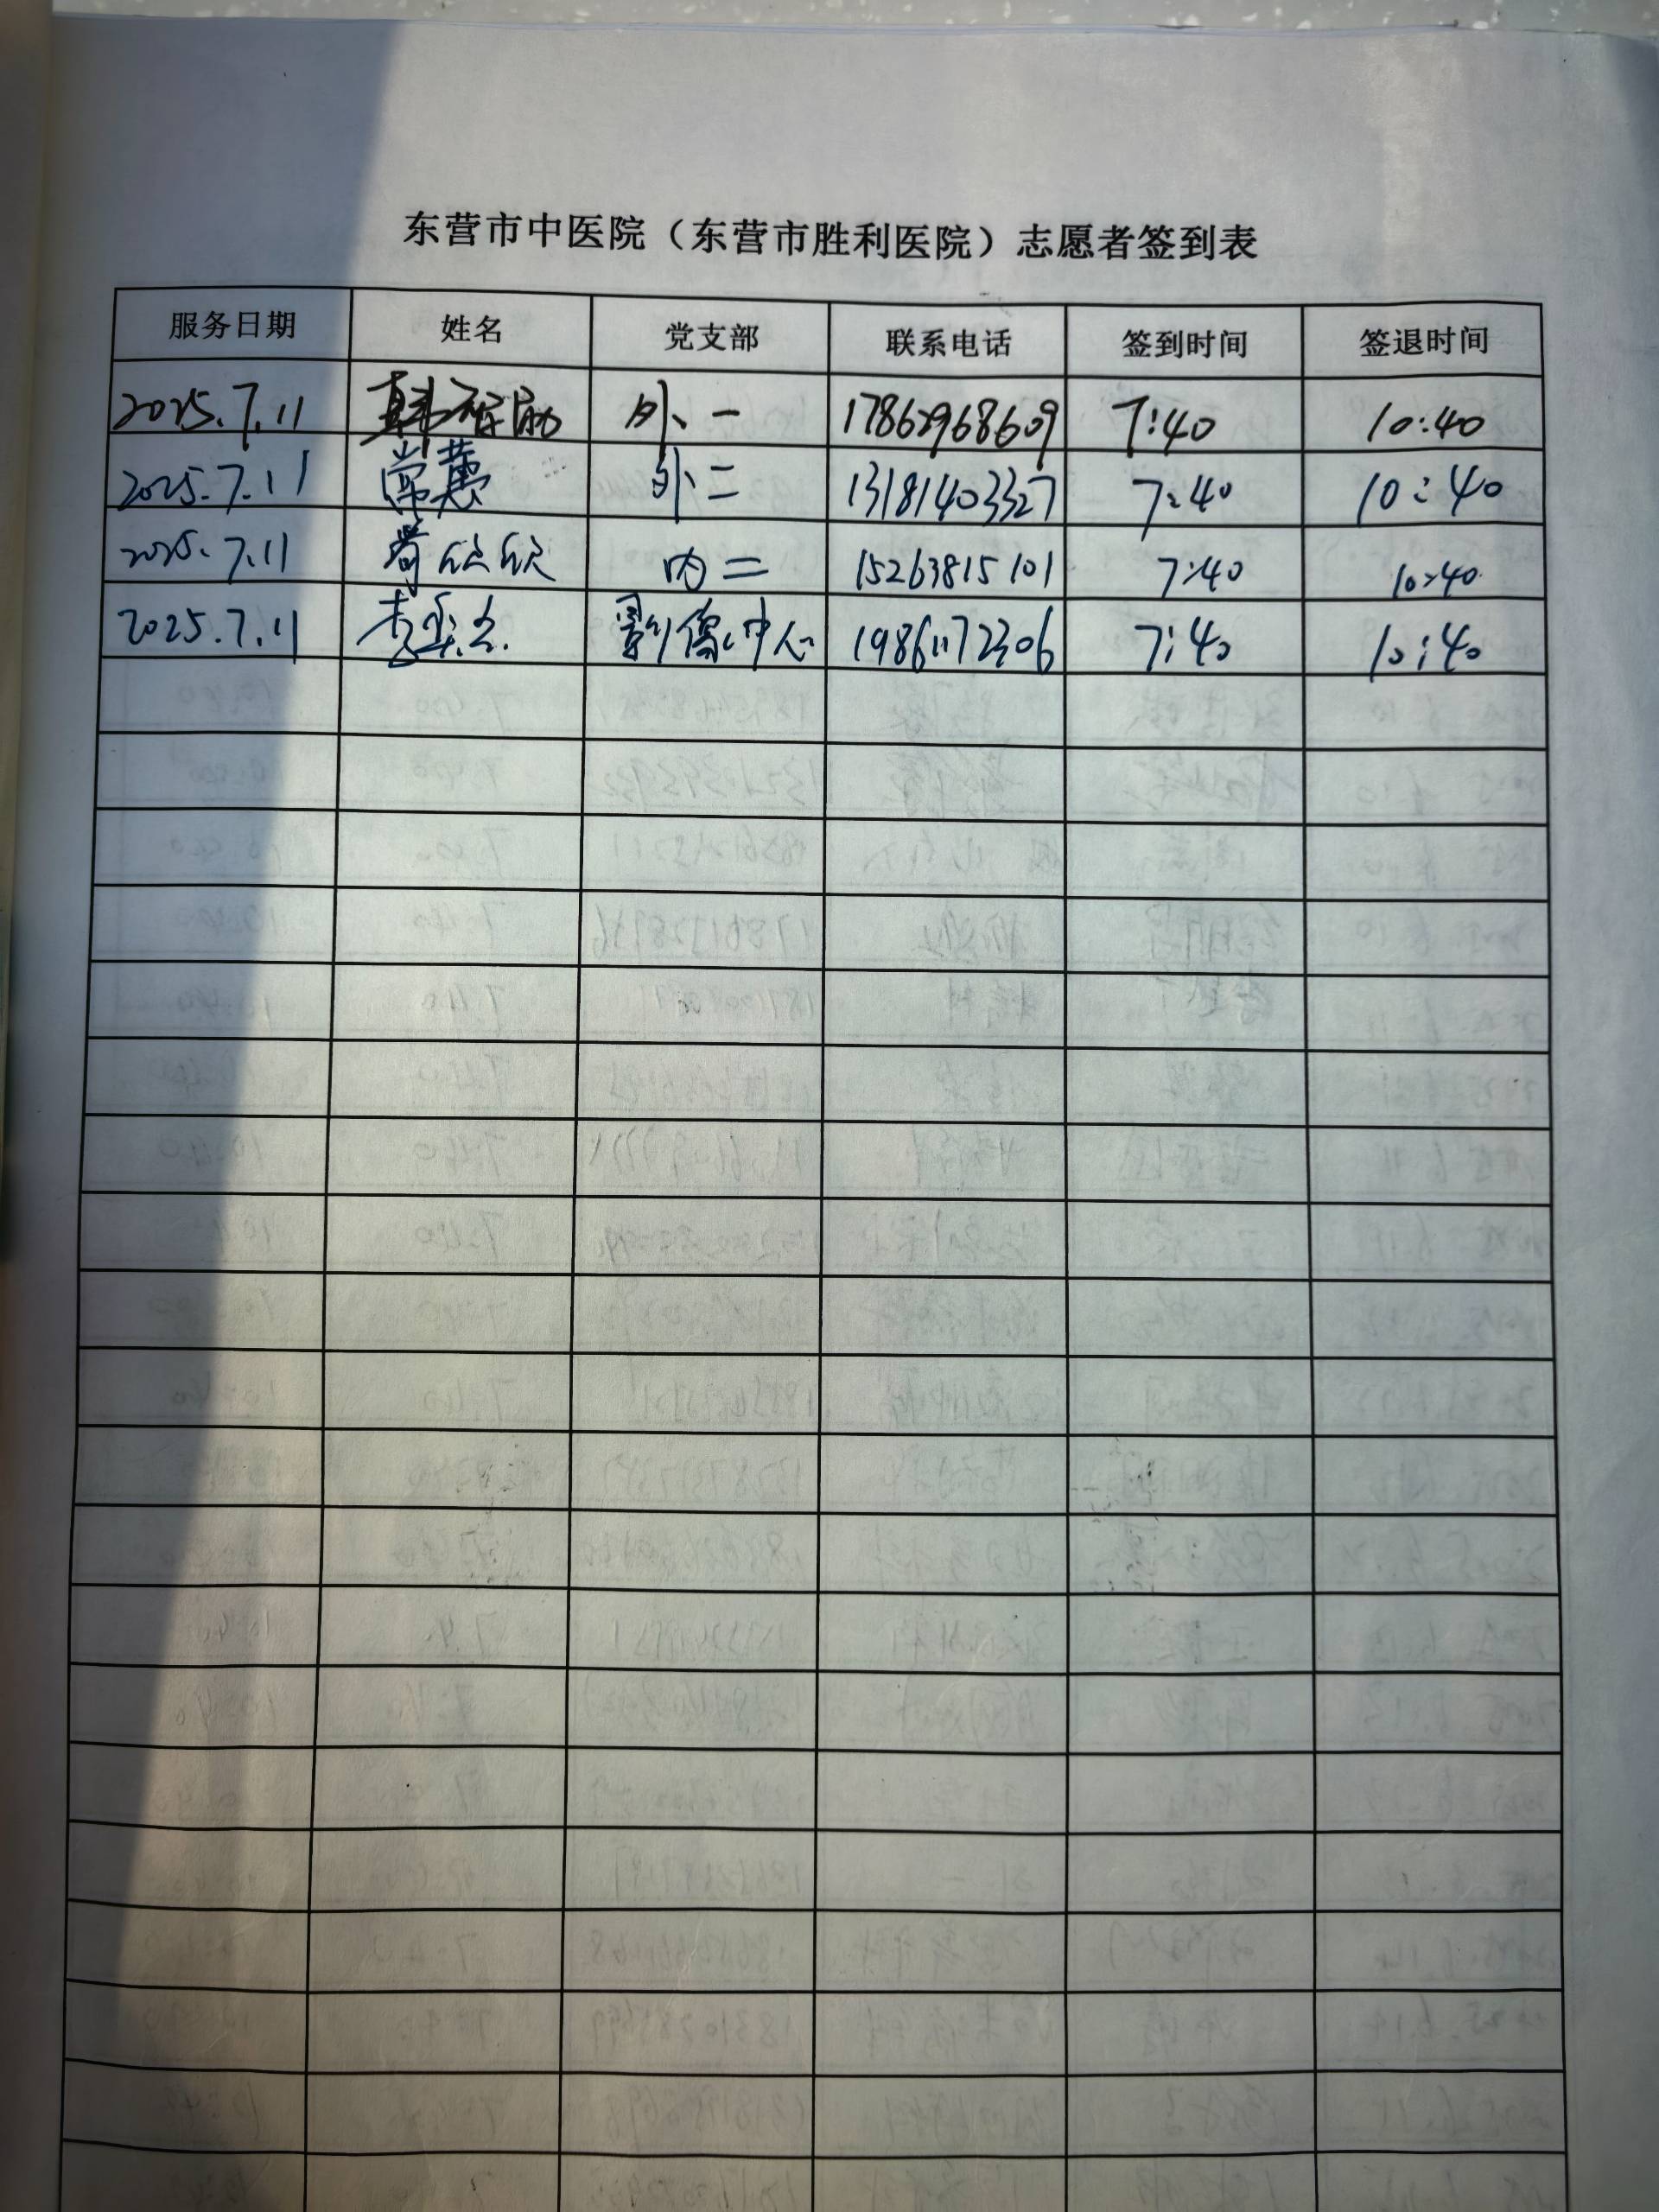 东营市中医院（东营市胜利医院）志愿者签到表
服务日期 姓名 党支部 联系电话 签到时间 签退时间
2025.7.11 外一 17862968609 7:40 10:40
2025.7.11 常慧 外二 13181403327 7:40 10:40
2025.7.11 欣欣 内二 15263815101 7:40 10:40
2025.7.11 李 影像中心 19861172306 7:40 10:40